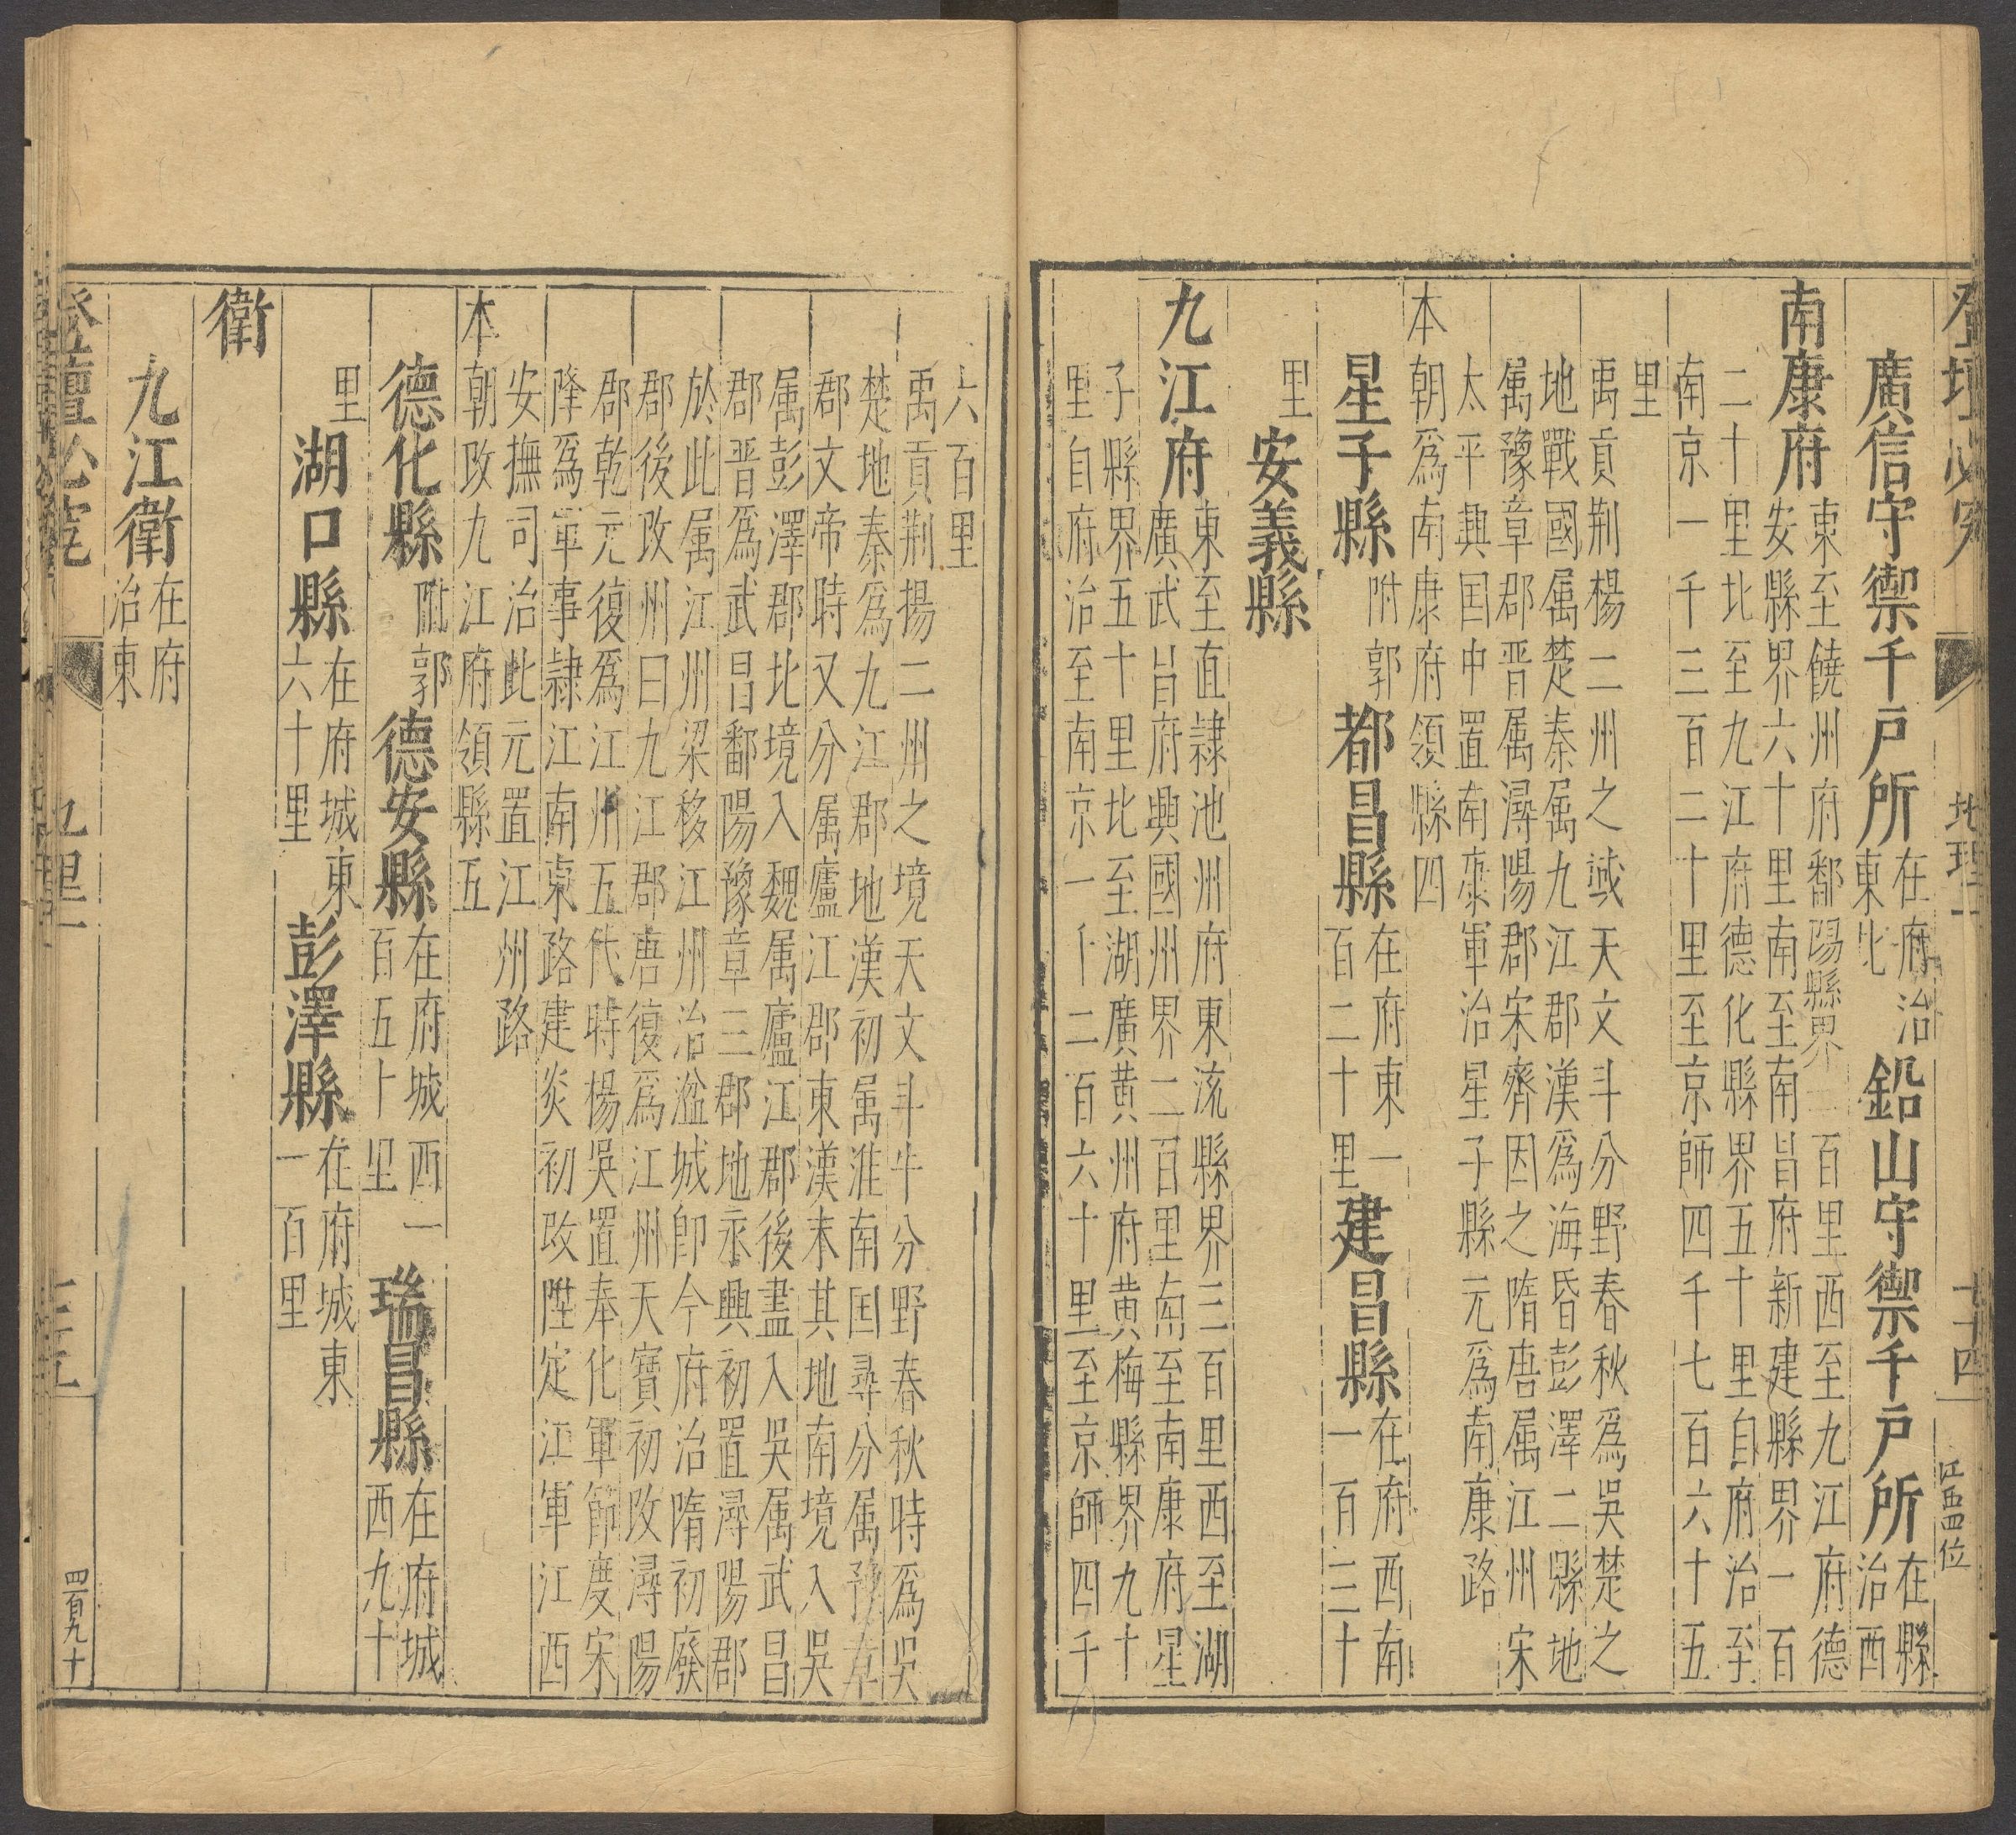 地理一
十四
江西四位
廣信守禦千戶所在府治東北鉛山守禦千戶所在縣治西
南康府東至饒州府鄱陽縣界二百里西至九江府德
安縣界六十里南至南昌府新建縣界一百
二十里北至九江府德化縣界五十里自府治至
南京一千三百二十里至京師四千七百六十五
里
禹貢荆楊二州之域天文斗分野春秋爲吳楚之
地戰國屬楚秦屬九江郡漢爲海昏彭澤二縣地
屬豫章郡晋屬潯陽郡宋齊因之隋唐屬江州宋
太平興国中置南康軍治星子縣元爲南康路
本朝爲南康府領縣四
星子縣附郭都昌縣在府東一百二十里建昌縣在府西南一百三十
里安義縣
九江府東至直隷池州府東流縣界三百里西至湖
廣武昌府興國州界二百里南至南康府星
子縣界五十里北至湖廣黄州府黄梅縣界九十
里自府治至南京一千二百六十里至京師四千
六百里
禹貢荆揚二州之境天文斗牛分野春秋時爲吳
楚地秦爲九江郡地漢初屬淮南囯尋分屬豫章
郡文帝時又分屬廬江郡東漢末其地南境入吳
屬彭澤郡北境入魏屬廬江郡後盡入吳屬武昌
郡晋爲武昌鄱陽豫章三郡地永興初置潯陽郡
於此属江州梁移江州治湓城即今府治隋初廢
郡後改州曰九江郡唐復爲江州天寶初改潯陽
郡乾元復爲江州五代時楊吳置奉化軍節度宋
降爲軍事隷江南東路建炎初改陞定江軍江西
安撫司治此元置江州路
本朝改九江府領縣五
德化縣附郭德安縣在府城西一百五十里瑞昌縣在府城西九十
里湖口縣在府城東六十里彭澤縣在府城東一百里
衛
九江衛在府治東
登壇必究
四百九十